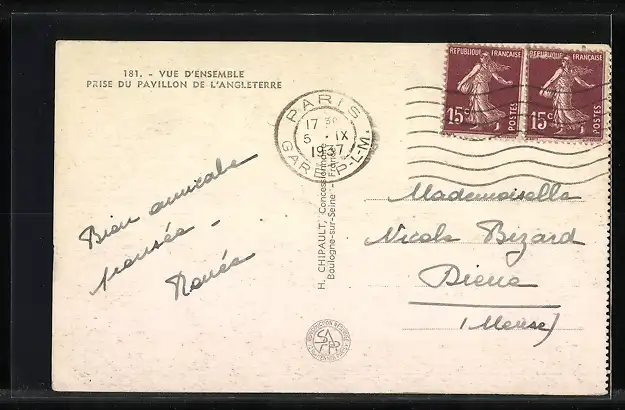 181. - VUE D'ENSEMBLE
PRISE DU PAVILLON DE L'ANGLETERRE
REPUBLIQUE FRANÇAISE
15c POSTES
REPUBLIQUE FRANÇAISE
15c POSTES
PARIS
17 30
5 · IX
1937
GARE P-L-M.
Bien amicale
pensée -
Renée
H. CHIPAULT, Concessionnaire
Boulogne-sur-Seine - France
Mademoiselle
Nicole Bizard
Dieue
(Meuse)